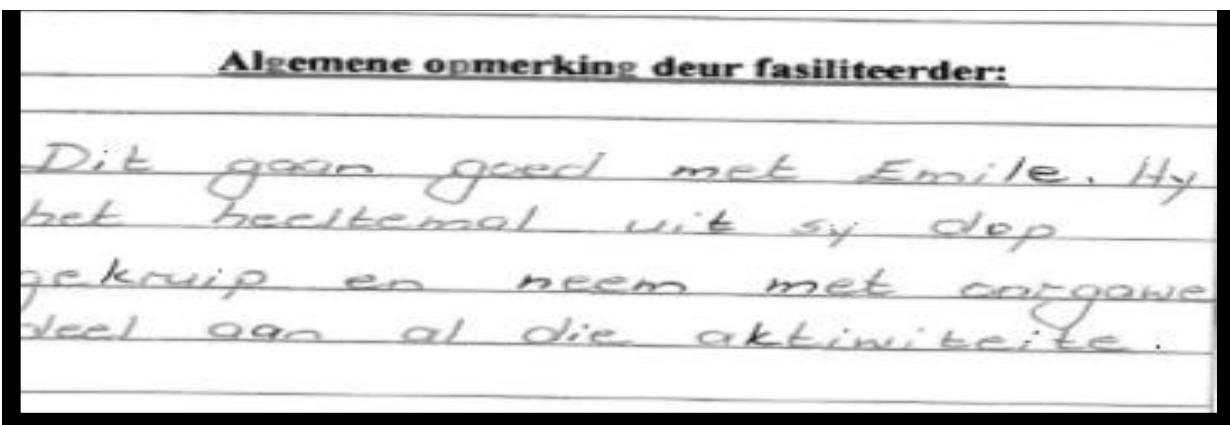 Algemene opmerking deur fasiliteerder:
Dit gaan goed met Emile. Hy
het heeltemal uit sy dop
gekruip en neem met oorgawe
deel aan al die aktiwiteite.